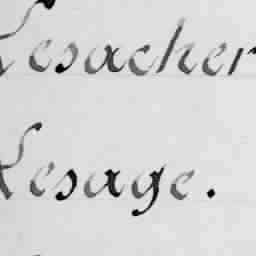 Lesacher
Lesage.